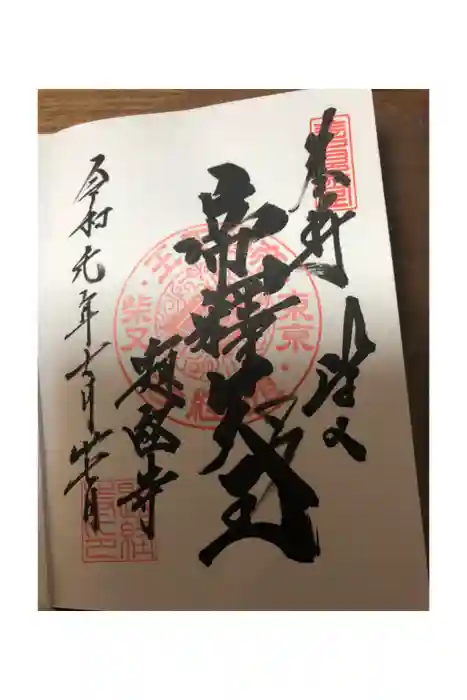 奉拜 柴又
帝釋天王
題経寺
令和元年 月廿 日
東京
柴又